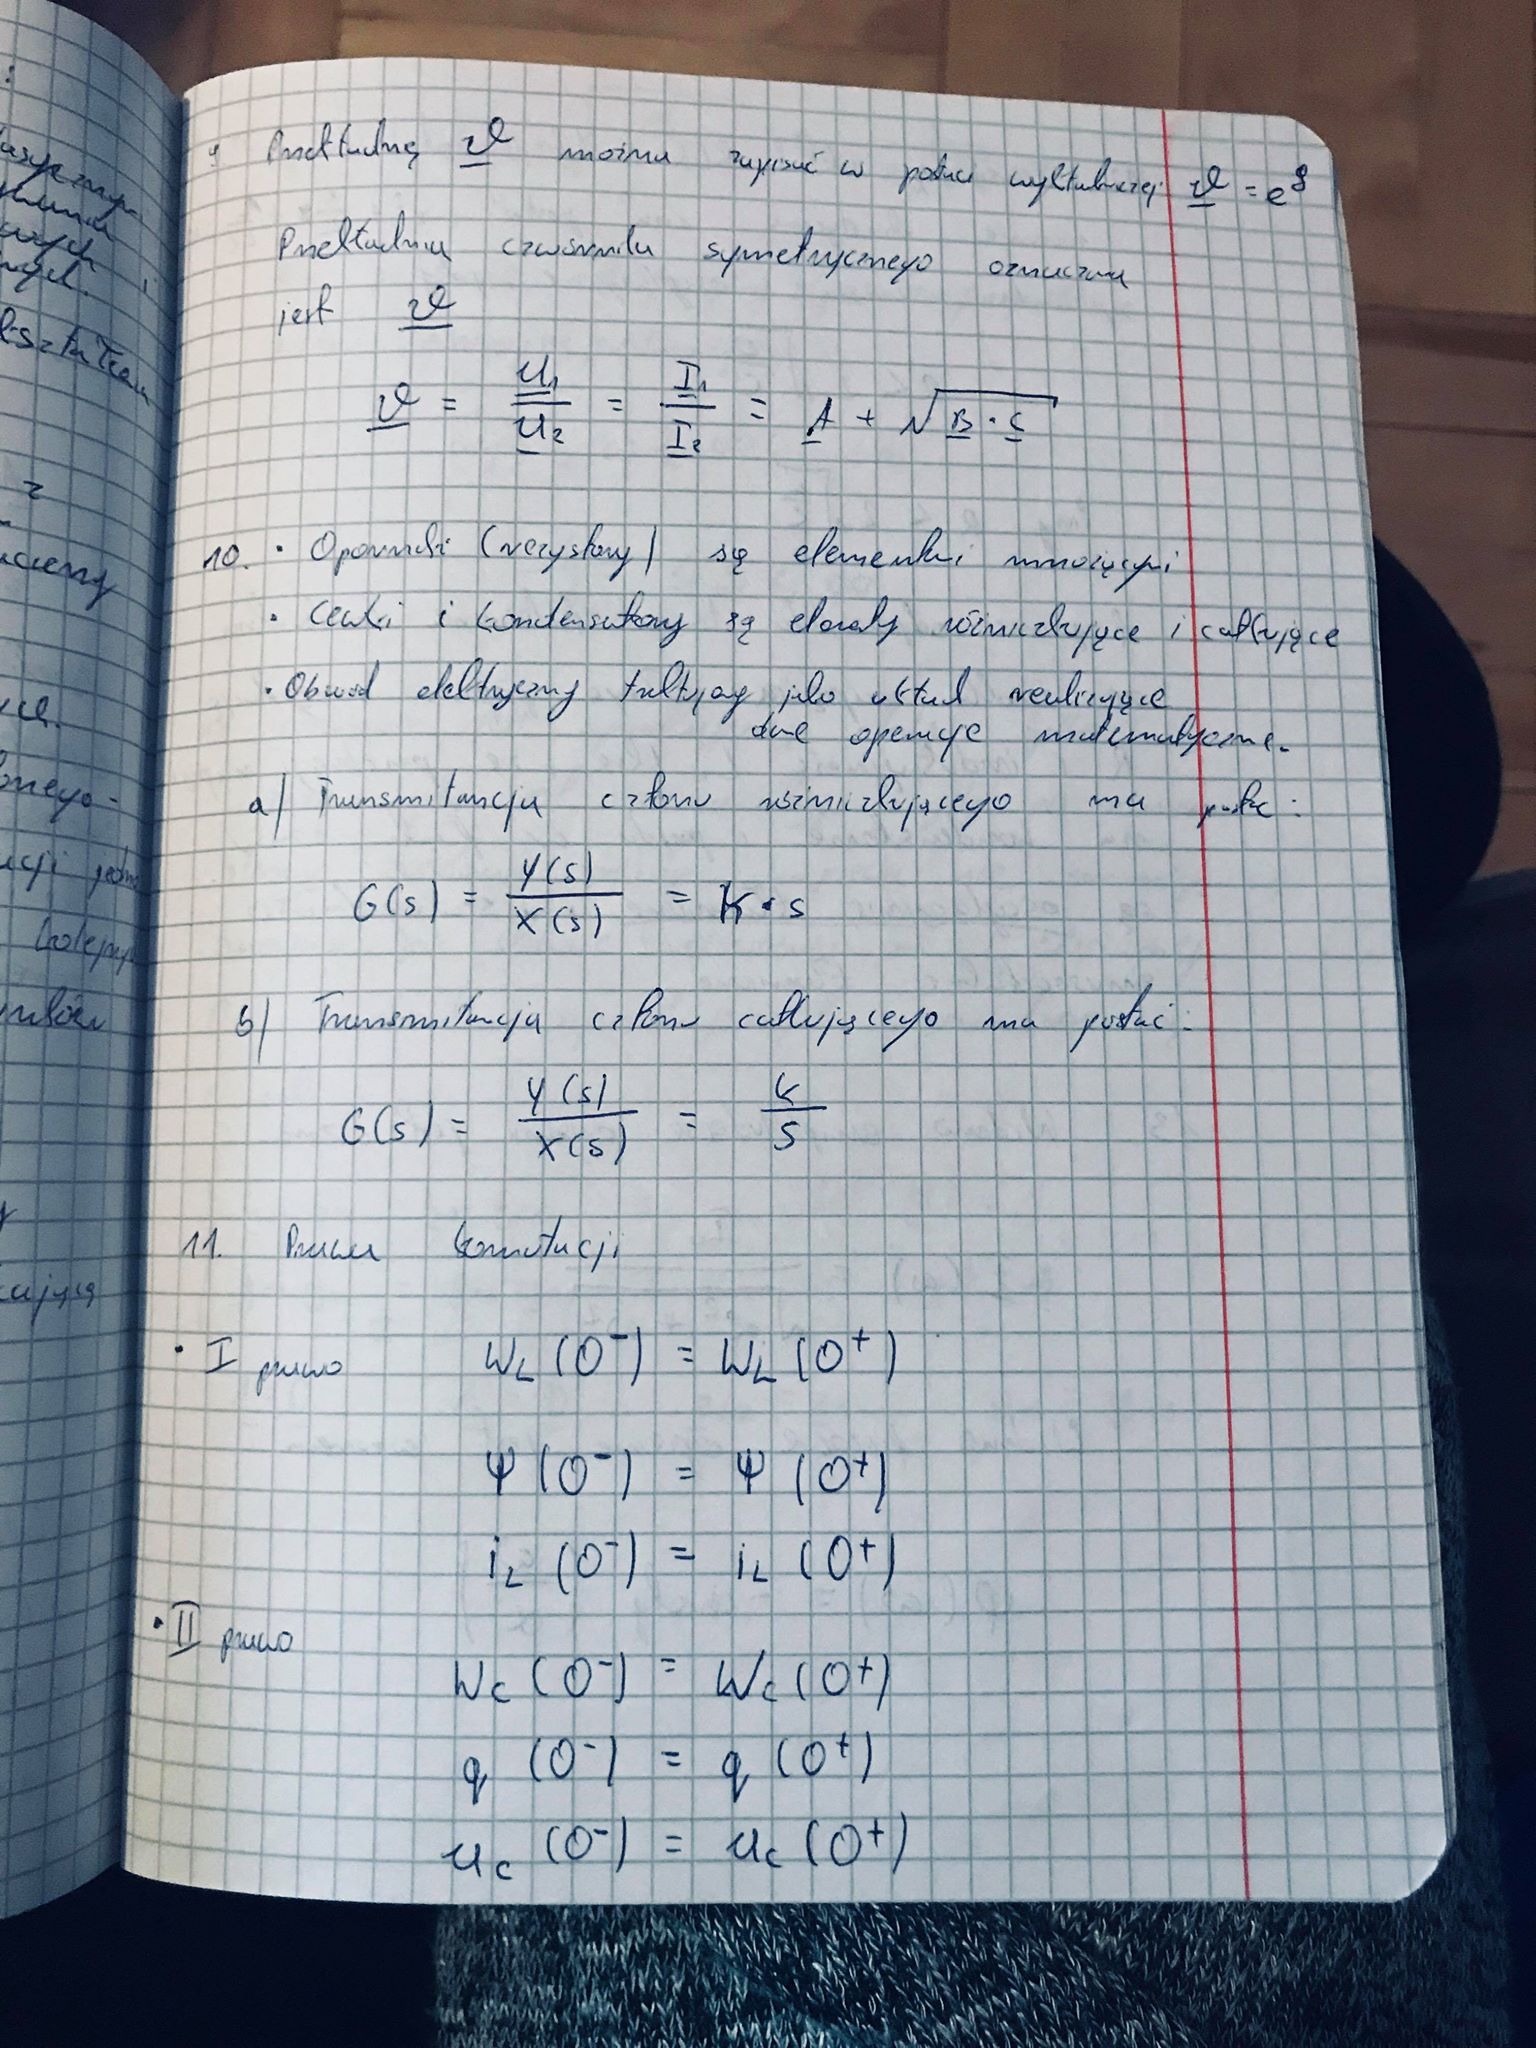 9 Przekładnię ϑ można zapisać w postaci wykładniczej ϑ = e^g
Przekładnia czwórnika symetrycznego oznaczona
jest ϑ
ϑ = U₁/U₂ = I₁/I₂ = A + √(B · C)
10. • Oporniki (rezystory) są elementami mnożącymi
• Cewki i kondensatory są elementy różniczkujące i całkujące
• Obwód elektryczny traktujemy jako układ realizujące
dane operacje matematyczne.
a) Transmitancja członu różniczkującego ma postać:
G(s) = Y(s)/X(s) = k · s
b) Transmitancja członu całkującego ma postać:
G(s) = Y(s)/X(s) = k/s
11. Prawa komutacji
• I prawo W_L(0⁻) = W_L(0⁺)
Ψ(0⁻) = Ψ(0⁺)
i_L(0⁻) = i_L(0⁺)
• II prawo
W_C(0⁻) = W_C(0⁺)
q(0⁻) = q(0⁺)
u_C(0⁻) = u_C(0⁺)